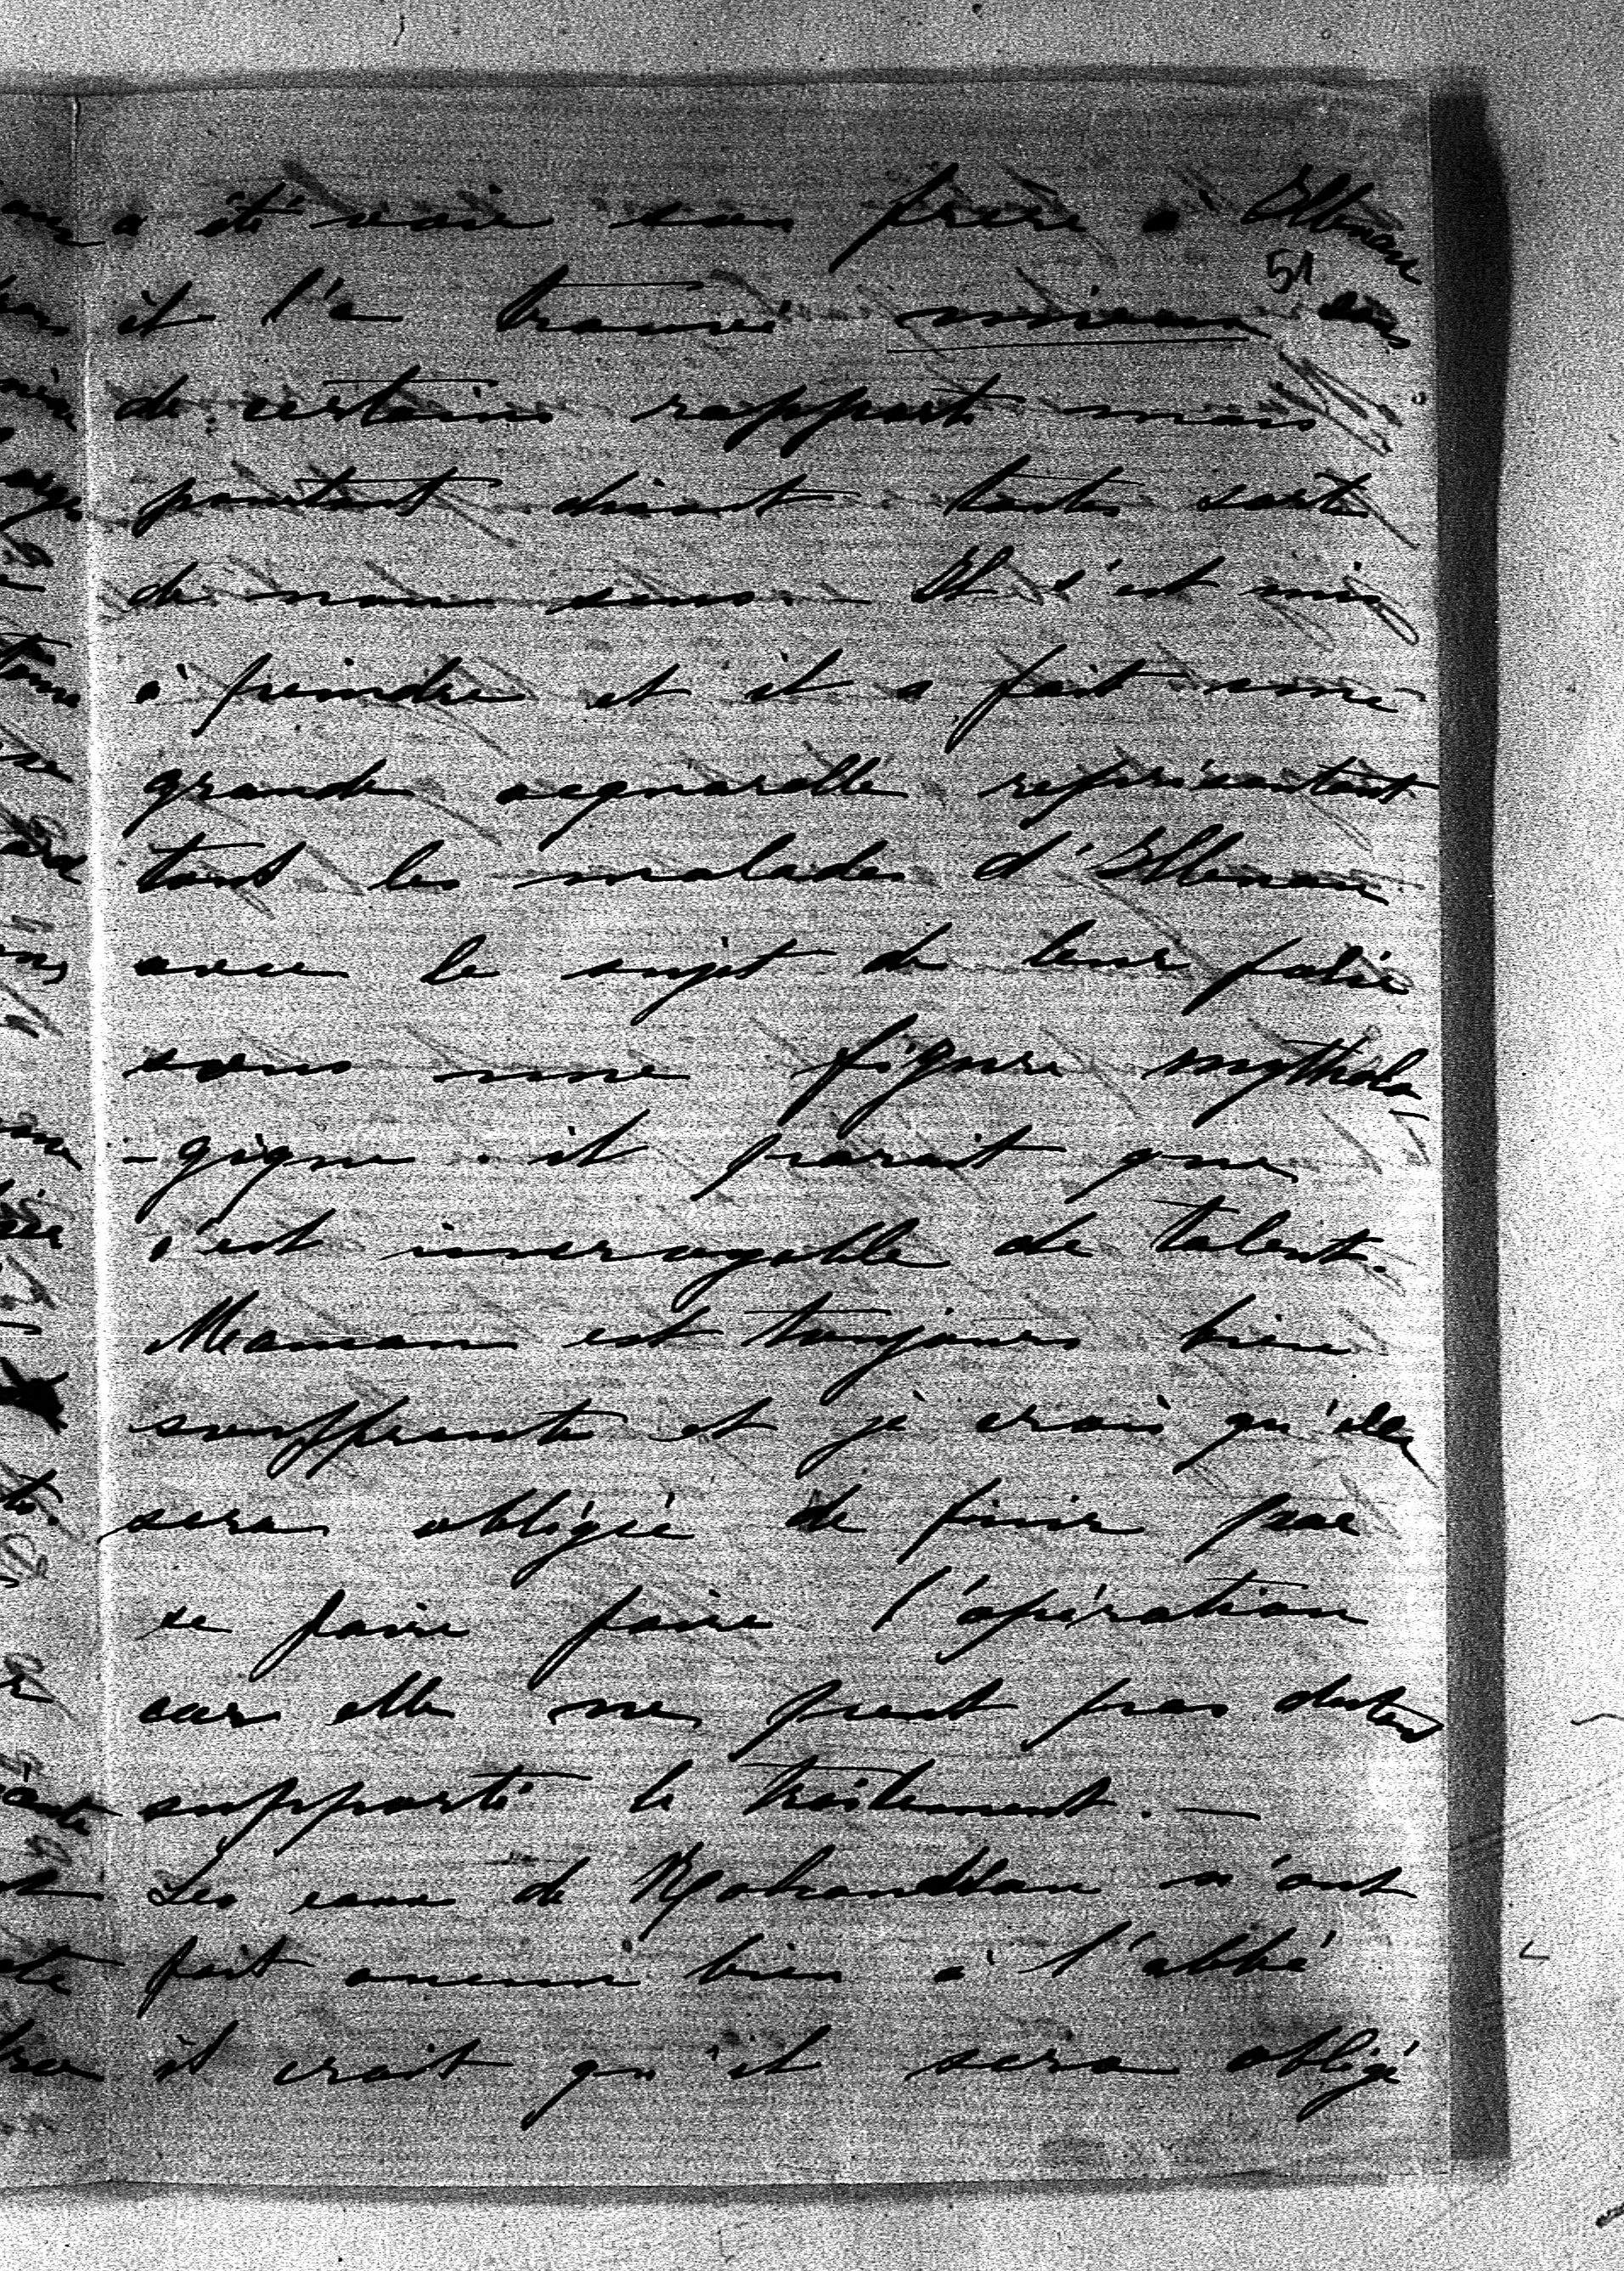 a été voir son frère à Illenau
51
et l'a trouvé mieux sous
de certains rapports mais
pourtant disant toutes sortes
de non sens. Il s'est mis
à peindre et il a fait une
grande acquarelle représentant
tous les malades d'Illenau
avec le sujet de leur folie
sous une figure mytholo
-gique. il parait que
c'est incroyable de talent.
Maman est toujours bien
souffrante et je crois qu'elle
sera obligée de finir par
se faire faire l'opération
car elle ne peut pas du tout
supporté le traitement. —
Les eaux de n'ont
fait aucun bien à l'abbé
il croit qu'il sera obligé